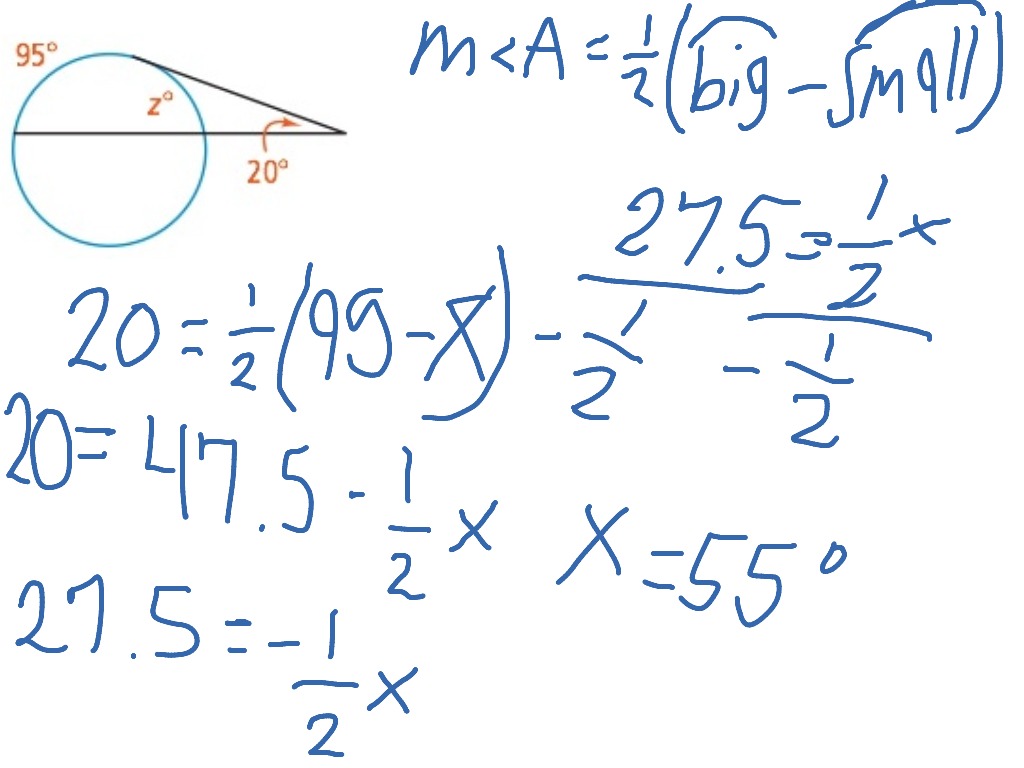 95°
z°
20°
m<A = 1/2 (big - small)
20 = 1/2 (95 - x)
20 = 47.5 - 1/2 x
27.5 = - 1/2 x
27.5 = 1/2 x
- 1/2 - 1/2
x = 55°